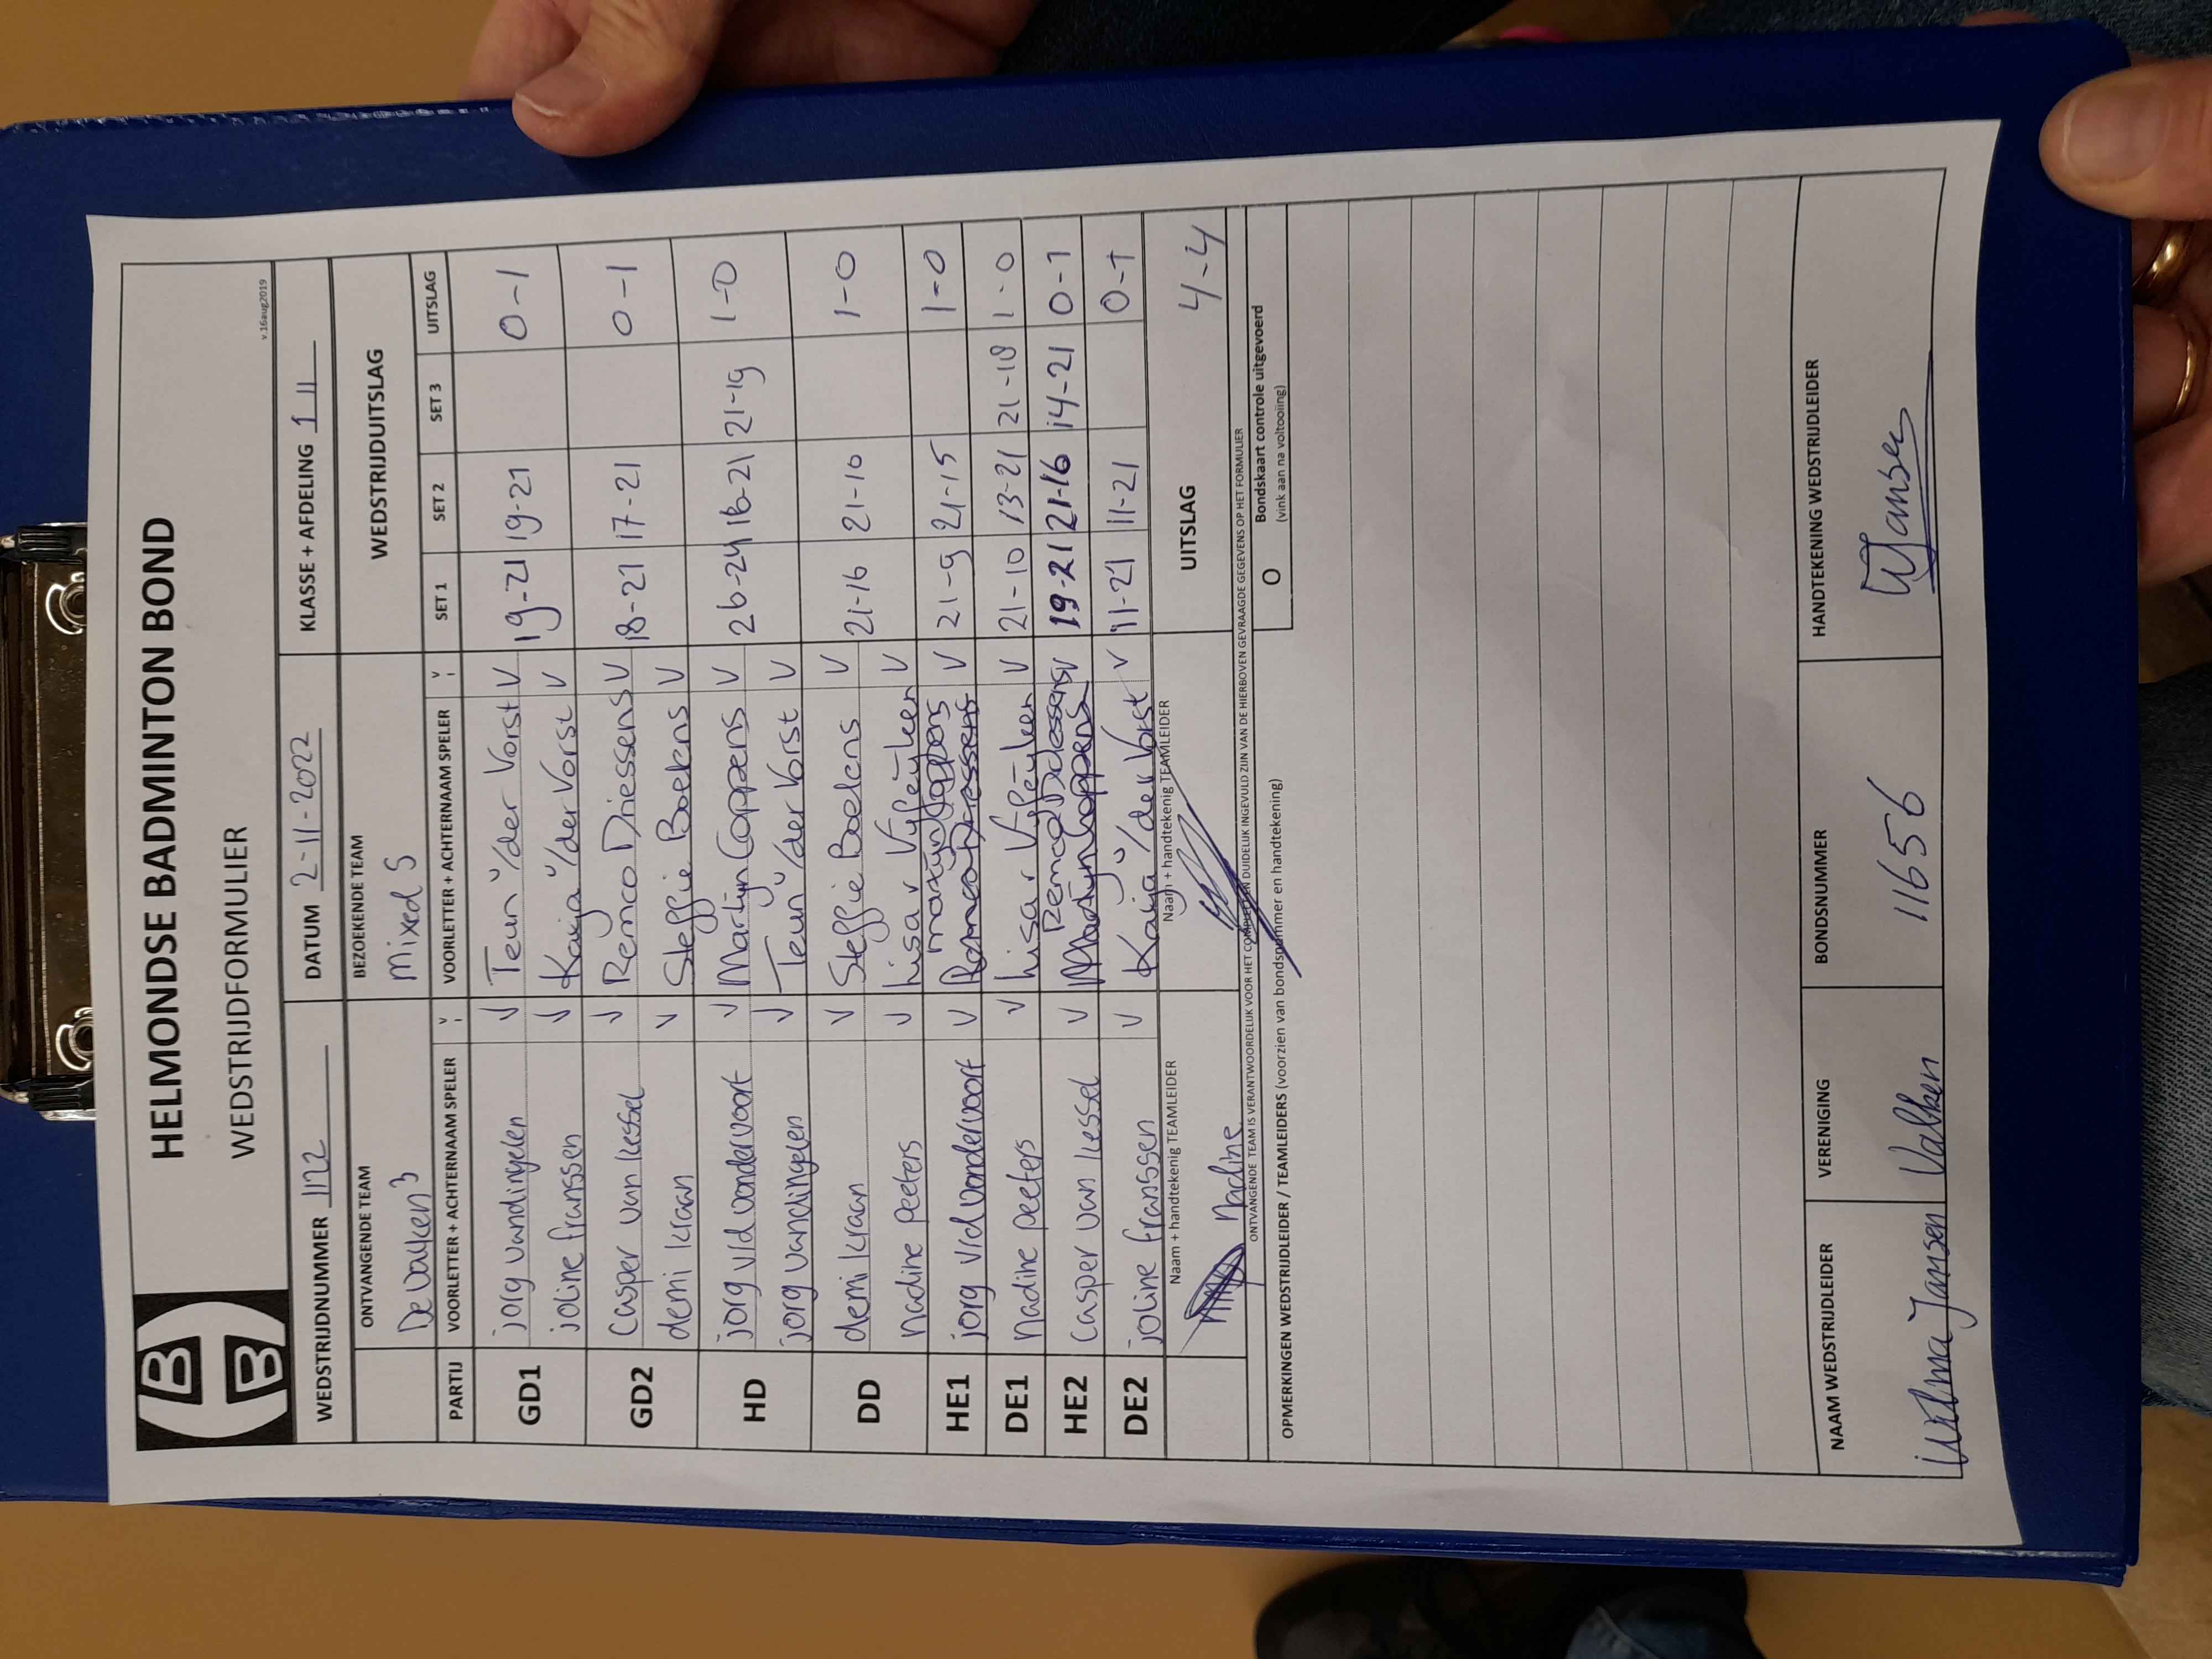 HELMONDSE BADMINTON BOND
WEDSTRIJDFORMULIER
v.16aug2019
WEDSTRIJDNUMMER 1122 DATUM 2-11-2022 KLASSE + AFDELING 1 II
ONTVANGENDE TEAM BEZOEKENDE TEAM WEDSTRIJDUITSLAG
De Valken 3 Mixed 5
PARTIJ VOORLETTER + ACHTERNAAM SPELER V VOORLETTER + ACHTERNAAM SPELER V SET 1 SET 2 SET 3 UITSLAG
GD1 jorg van dingelen V Teun v/der Vorst V 19-21 19-21 0-1
joline franssen V Kaya v/der Vorst V
GD2 Casper van Lessel V Remco Driessens V 18-21 17-21 0-1
demi kraan V Steffie Boelens V
HD jorg v/d vondervoort V Martijn Coppens V 26-24 16-21 21-19 1-0
jorg van dingelen V Teun v/der Vorst V
DD demi kraan V Steffie Boelens V 21-16 21-10 1-0
nadine peeters V Lisa v Vyfeyken V
HE1 jorg v/d vondervoort V Martijn Coppens V 21-9 21-15 1-0
DE1 nadine peeters V Lisa v Vyfeyken V 21-10 13-21 21-18 1-0
HE2 Casper van Lessel V Remco Driessens V 19-21 21-16 14-21 0-1
DE2 joline franssen V Kaya v/der Vorst V 11-21 11-21 0-1
Naam + handtekenig TEAMLEIDER Naam + handtekenig TEAMLEIDER UITSLAG 4-4
Nadine
ONTVANGENDE TEAM IS VERANTWOORDELIJK VOOR HET COMPLEET EN DUIDELIJK INGEVULD ZIJN VAN DE HIERBOVEN GEVRAAGDE GEGEVENS OP HET FORMULIER
OPMERKINGEN WEDSTRIJDLEIDER / TEAMLEIDERS (voorzien van bondsnummer en handtekening)
O Bondskaart controle uitgevoerd
(vink aan na voltooiing)
NAAM WEDSTRIJDLEIDER VERENIGING BONDSNUMMER HANDTEKENING WEDSTRIJDLEIDER
Wilma Jansen Valken 11656 WJansen